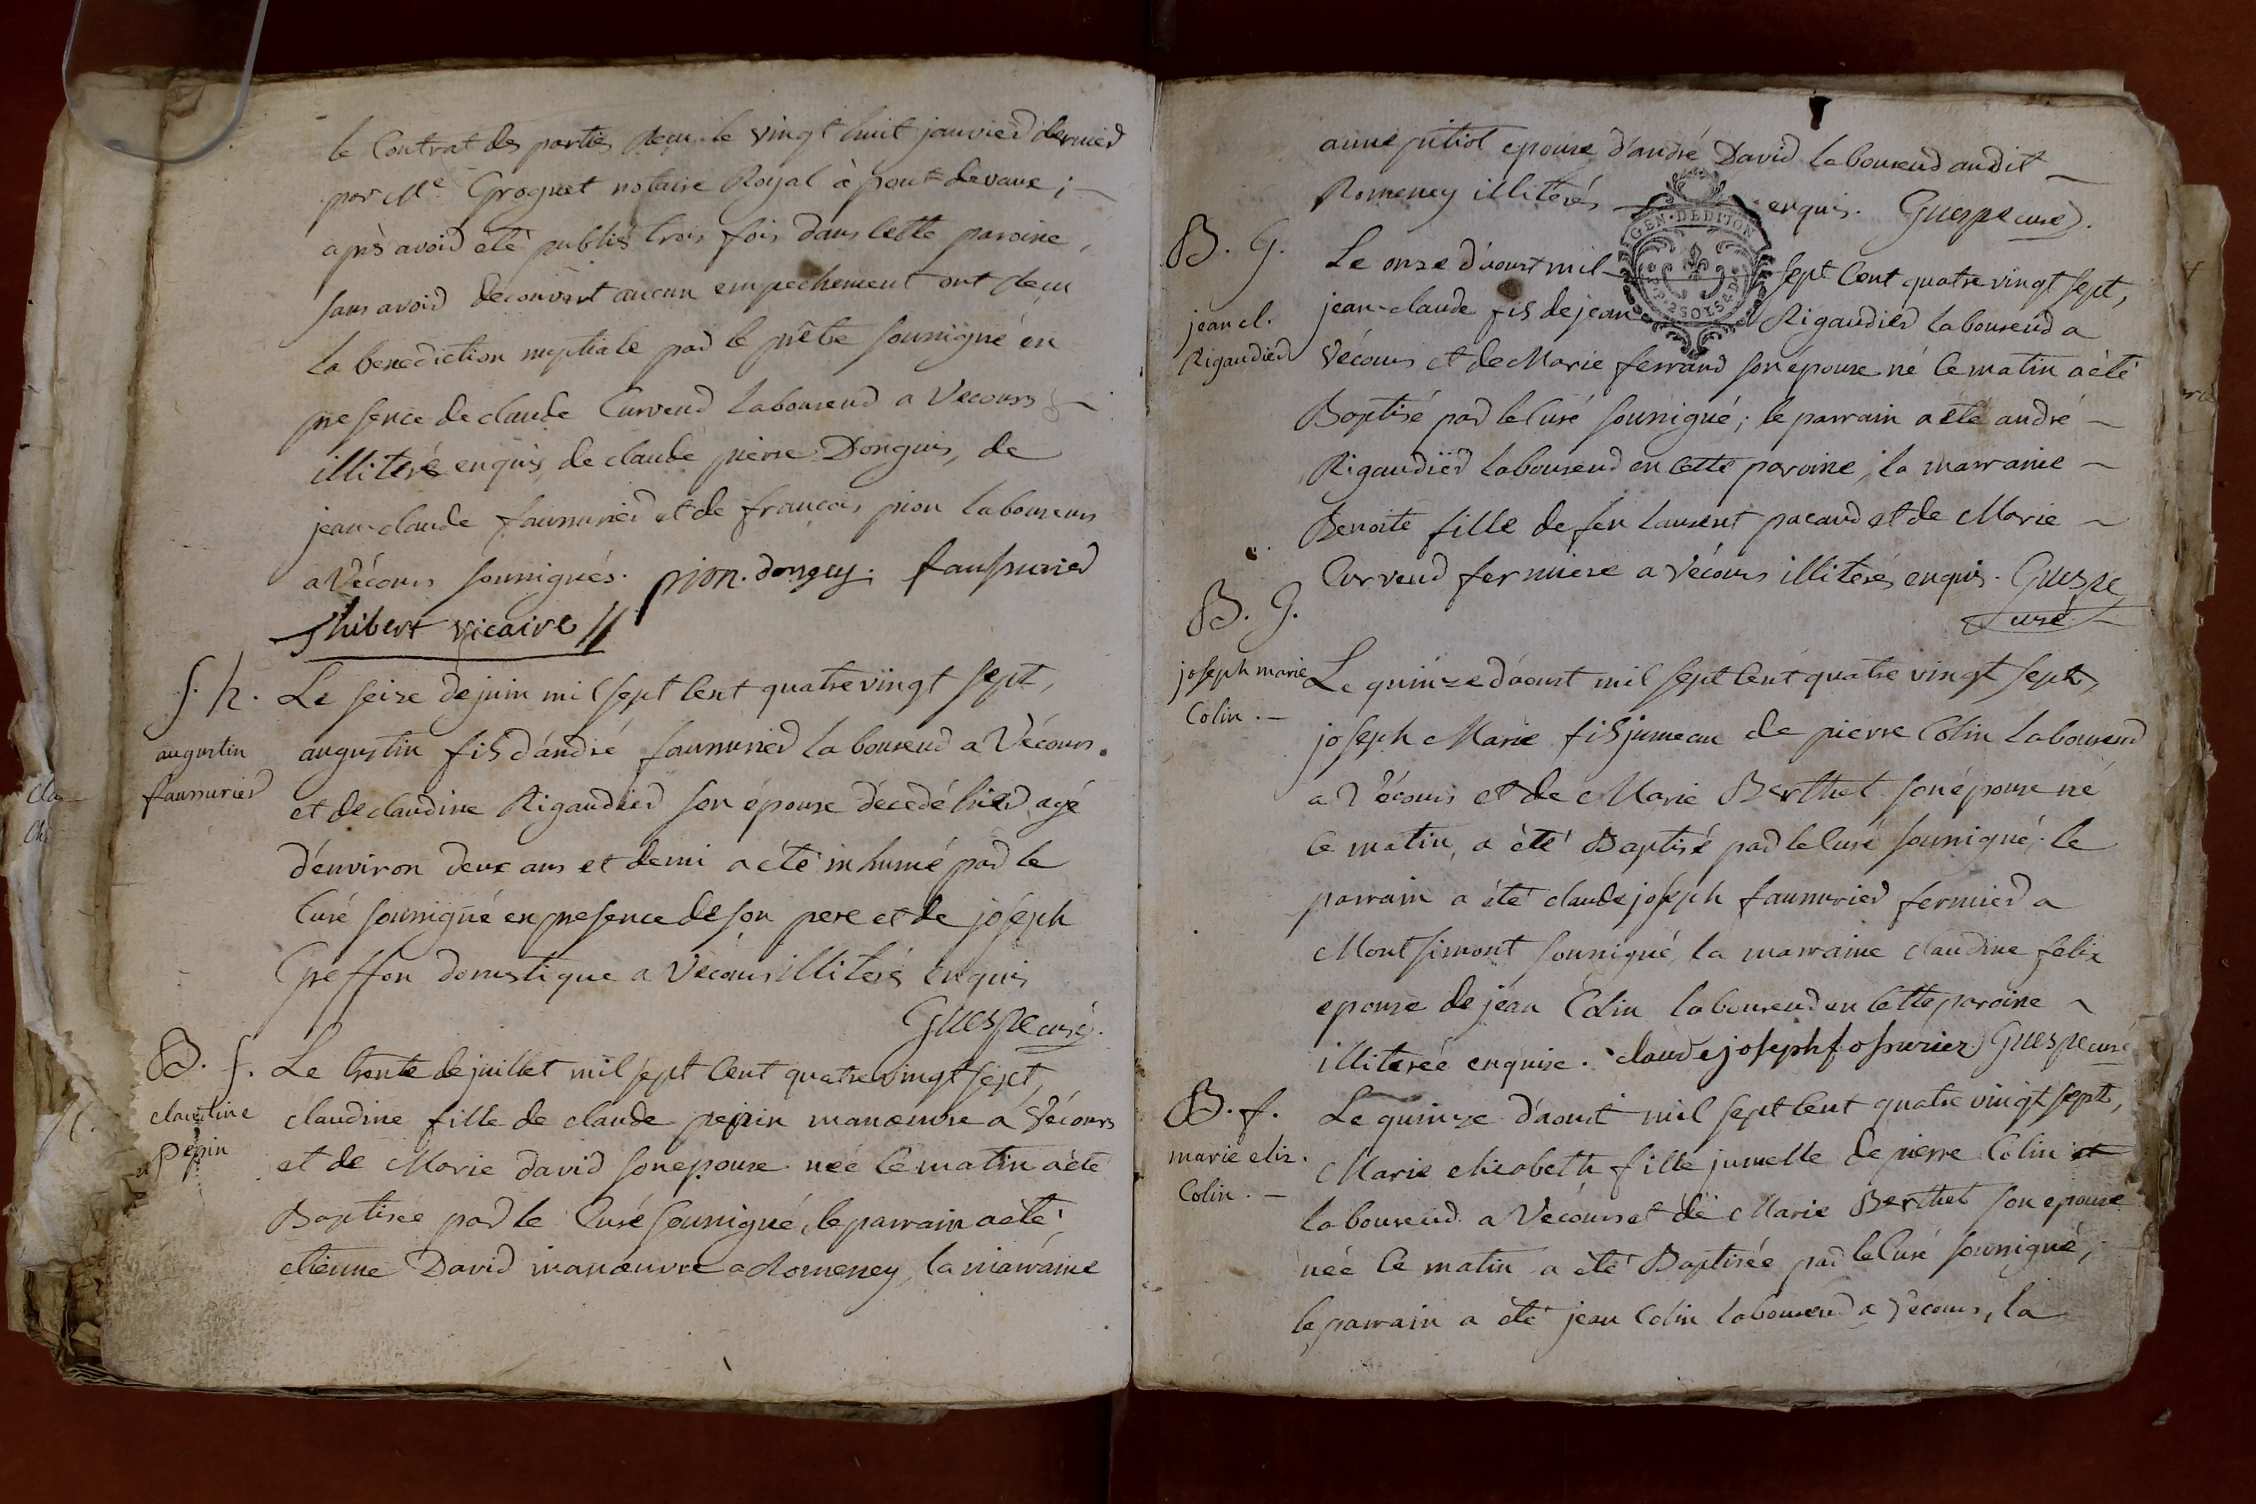 le Contrat des parties reçu le vingt huit janvier dernier
par Me. Groguet notaire Royal à pont devaux ;
après avoir été publié trois fois dans cette paroisse,
sans avoir decouvert aucun empechement ont reçu
la benediction nuptiale par le prêtre soussigné en
presence de claude Curveur laboureur a Vecours
illiteré enquis, de claude pierre Donguis, de
jean-claude faussurier et de françois pion laboureurs
a Vécours soussignés. pion. dongey. faussurier
thibert vicaire
S. h. Le seize de juin mil sept cent quatre vingt sept,
augustin augustin fils d'andré faussurier laboureur a Vécours.
faussurier et de claudine Rigaudier son épouse décedé hier agé
d'environ deux ans et demi a été inhumé par le
Curé soussigné en presence de son pere et de joseph
Greffon domestique a Vécours illiterés enquis
Guespe curé.
B. f. Le trente de juillet mil sept cent quatre vingt sept,
claudine claudine fille de claude pepin manœuvre a Vécours
pepin et de Marie david son epouse née ce matin a été
Baptisée par le Curé soussigné, le parrain a été
etienne David manœuvre a Romeney, la marraine
anne pitiot epouse d'andré David laboureur audit
Romeney illiterés enquis. Guespe curé.
GEN. DEDITION
2 SOLS
B. G. Le onze d'aoust mil sept cent quatre vingt sept,
jean cl. jean-claude fils de jean Rigaudier laboureur a
Rigaudier Vécours et de Marie ferrand son épouse né ce matin a été
Baptisé par le Curé soussigné ; le parrain a été andré
Rigaudier laboureur en cette paroisse, la marraine
Benoite fille de feu laurent pacaud et de Marie
Curveur fermiere a Vécours illiterés enquis. Guespe
Curé
B. G.
joseph marie Le quinze d'aoust mil sept cent quatre vingt sept,
Colin. joseph Marie fils jumeau de pierre Colin laboureur
a Vécours et de Marie Berthet son épouse né
ce matin, a été Baptisé par le Curé soussigné. le
parrain a été claude joseph faussurier fermier a
Montsimont soussigné, la marraine claudine felix
epouse de jean Colin laboureur en cette paroisse
illiterée enquise. claude joseph fossurier Guespe curé
B. f. Le quinze d'aoust mil sept cent quatre vingt sept,
marie eliz. Marie elisabeth fille jumelle de pierre Colin et
Colin. laboureur a Vécours et de Marie Berthet son epouse
née ce matin a été Baptisée par le Curé soussigné,
le parrain a été jean Colin laboureur a Vécours, la